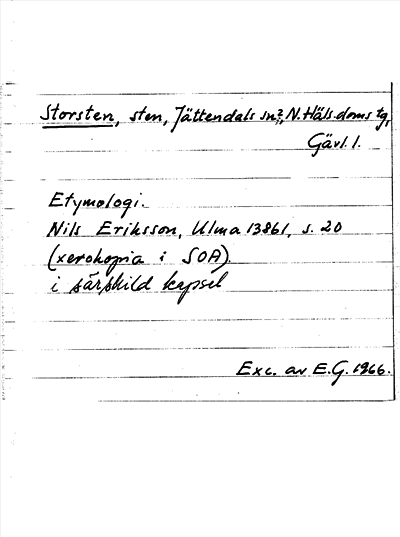 Storsten, sten, Jättendals sn?, N. Häls. doms tg,
Gävl. l.
Etymologi.
Nils Eriksson, Ulma 13861, s. 20
(xerokopia i SOA).
i särskild kapsel
Exc. av E.G. 1966.